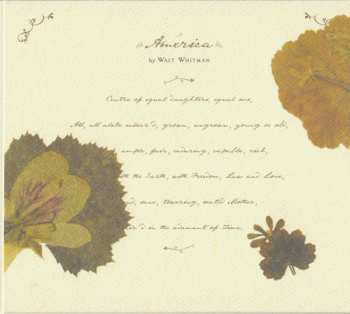 America
by Walt Whitman
Centre of equal daughters, equal sons,
All, all alike endear'd, grown, ungrown, young or old,
ample, fair, enduring, capable, rich,
the Earth, with Freedom, Law and Love,
sane, towering, seated Mother,
in the adamant of Time.